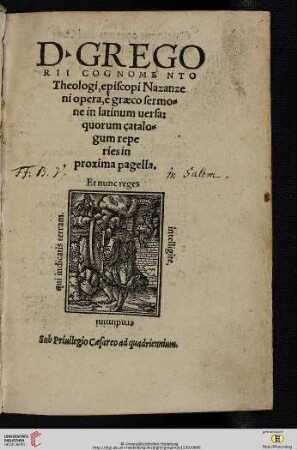 D. GREGO
RII COGNOMENTO
Theologi, episcopi Nazanze
ni opera, è græco sermo-
ne in latinum uersa:
quorum catalo-
gum repe
ries in
proxima pagella.
in Salem.
Et nunc reges
intelligite,
erudimini
qui iudicatis terram.
Sub Priuilegio Cæsareo ad quadriennium.
UNIVERSITÄTS-
BIBLIOTHEK
HEIDELBERG
© Universitätsbibliothek Heidelberg